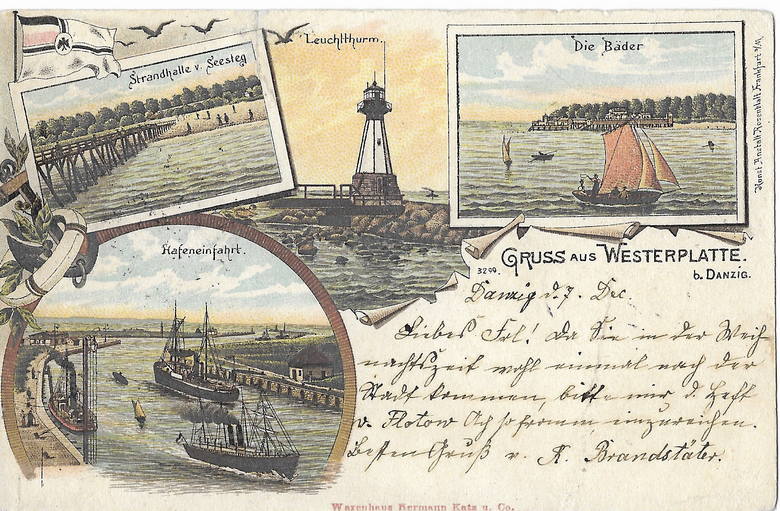 Strandhalle v. Seesteg
Leuchtthurm.
Die Bäder
Kunst Anstalt Rosenblatt Frankfurt a/M.
Hafeneinfahrt.
GRUSS AUS WESTERPLATTE.
b. DANZIG.
3299.
Danzig d. 7. Dec.
Liebes Frl! Da Sie in der Weih
nachtszeit wohl einmal nach der
Stadt kommen, bitte mir d. Heft
v. Flotow Ach so fromm einzureichen.
Besten Gruß v. A. Brandstäter.
Waarenhaus Hermann Katz u. Co.